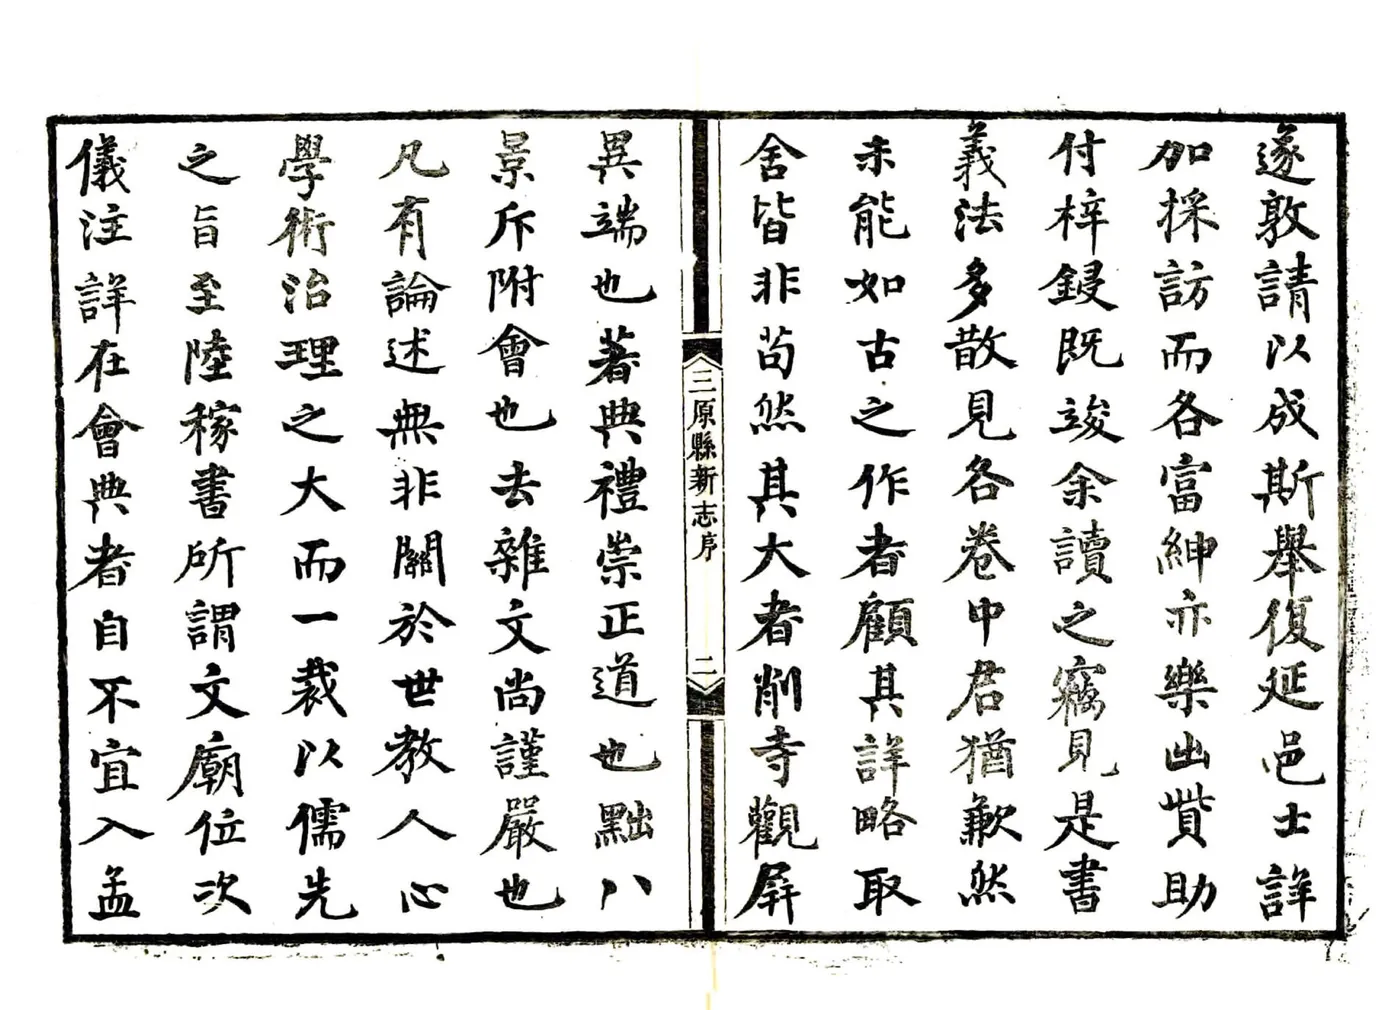 遂敦請以成斯舉復延邑士詳
加採訪而各富紳亦樂出貲助
付梓鋟既竣余讀之竊見是書
義法多散見各卷中君猶歉然
未能如古之作者顧其詳略取
舍皆非苟然其大者削寺觀屏
三原縣新志序
二
異端也著典禮崇正道也黜八
景斥附會也去雜文尚謹嚴也
凡有論述無非關於世教人心
學術治理之大而一裁以儒先
之旨至陸稼書所謂文廟位次
儀注詳在會典者自不宜入孟